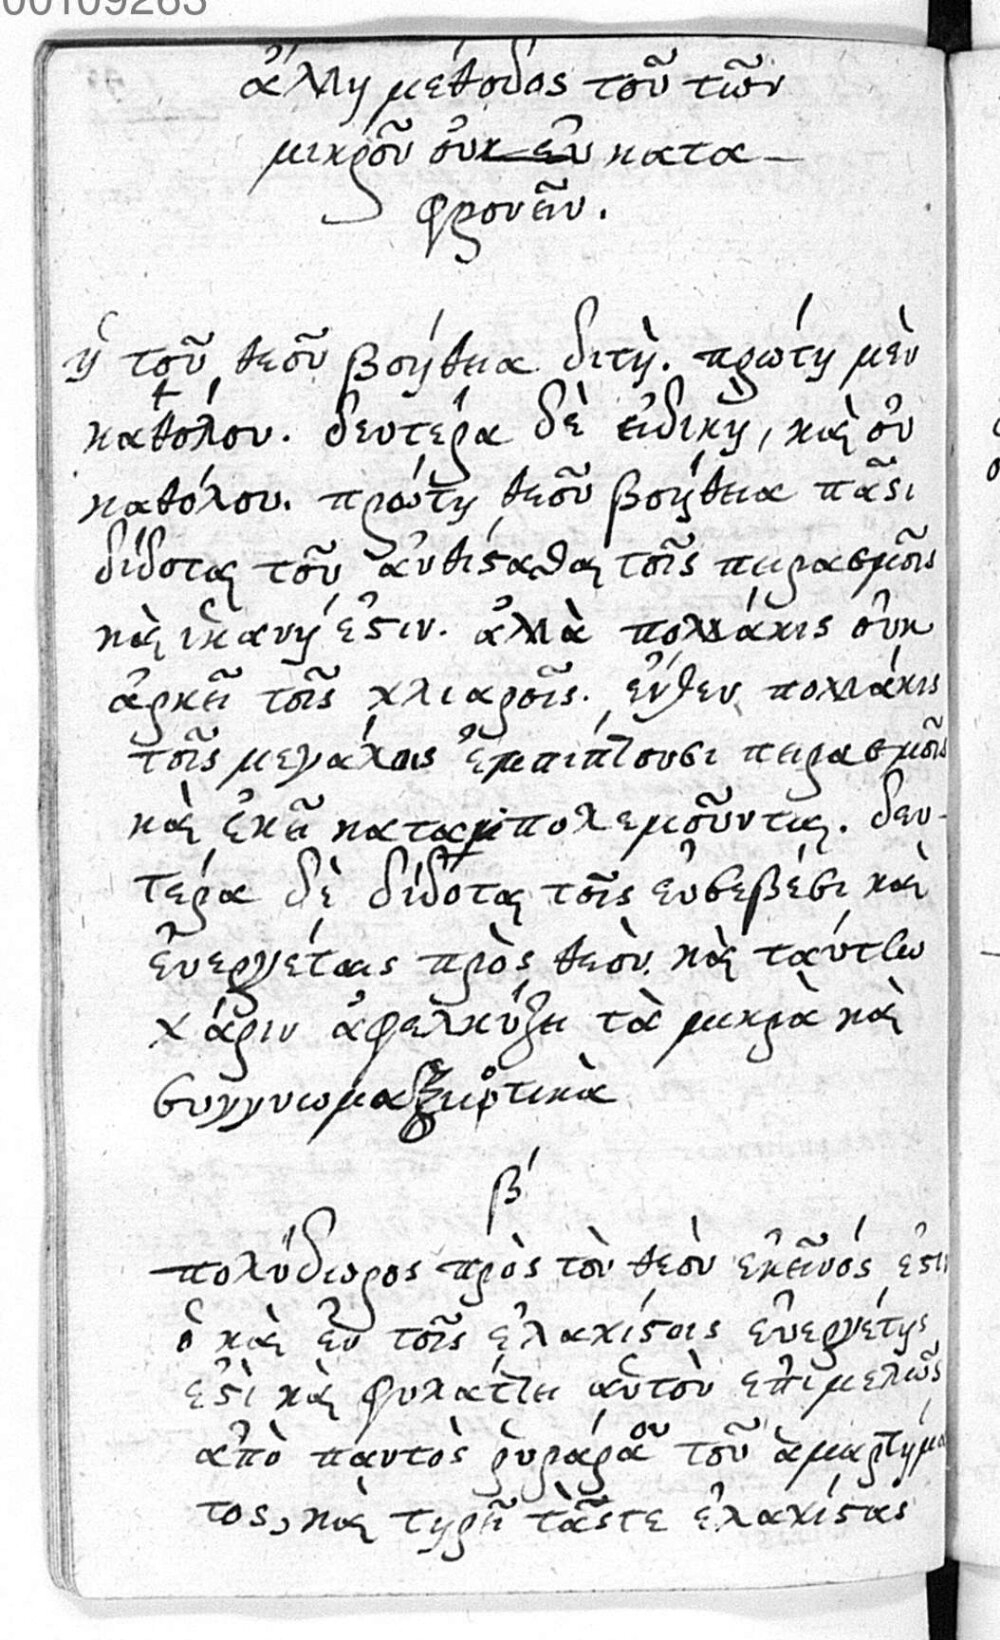 00109263
ἄλλη μέθοδος τοῦ τῶν
μικρῶν οὐκ ἐν κατα-
φρονεῖν.
ἡ τοῦ θεοῦ βοήθεια διτὴ. πρώτη μὲν
καθόλου. δευτέρα δὲ εἰδικὴ, καὶ οὐ
καθόλου. πρώτη θεοῦ βοήθεια πᾶσι
δίδοται τοῦ ἀνθίσασθαι τοῖς πειρασμοῖς
καὶ ἱκανή ἐστιν. ἀλλὰ πολλάκις οὐκ
ἀρκεῖ τοῖς χλιαροῖς. ἔνθεν πολλάκις
τοῖς μεγάλοις ἐμπίπτουσι πειρασμοῖς
καὶ ἐκεῖ καταπολεμοῦνται. δευ-
τέρα δὲ δίδοται τοῖς εὐσεβέσι καὶ
εὐεργέταις πρὸς θεὸν. καὶ ταύτην
χάριν ἀφελκύζει τὰ μικρὰ καὶ
β΄
πολύδωρος πρὸς τὸν θεὸν ἐκεῖνός ἐστι
ὁ καὶ ἐν τοῖς ἐλαχίστοις εὐεργέτης
ἐστὶ καὶ φυλάττει αὑτὸν ἐπιμελῶς
ἀπὸ παντὸς ῥυπάρου τοῦ ἁμαρτήμα
τος, καὶ τηρεῖ τὰς ἐλαχίστας